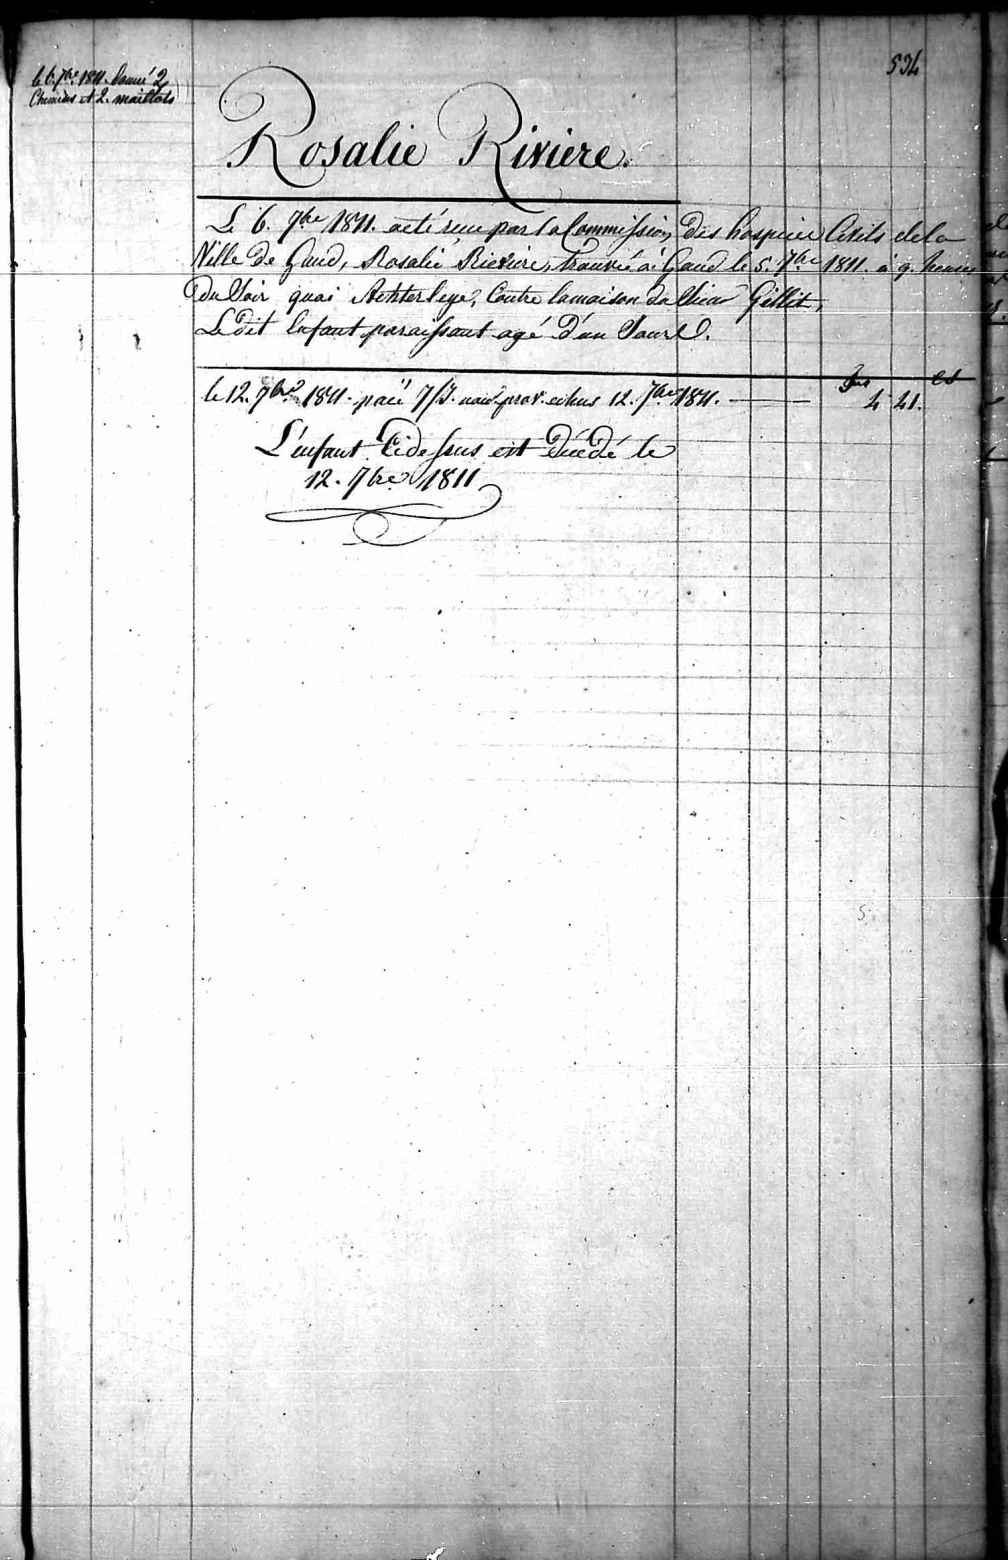 534
le 6. 7bre 1811. donné 2
Chemises et 2. maillots
Rosalie Riviere.
Le 6. 7bre 1811. a été reçu par la Commission des hospices Civils de la
Ville de Gand, Rosalie Riviere, trouvée à Gand le 5. 7bre 1811. à 9. heures
Du Soir quai Achterleye, Contre la maison Gillit,
Le dit Enfant paraissant agé d'un Jour.
frs cs
le 12. 7bre 1811. paié 7/J. echus 12. 7bre 1811. 4 41.
L'enfant Cidessus est Décédé le
12. 7bre 1811